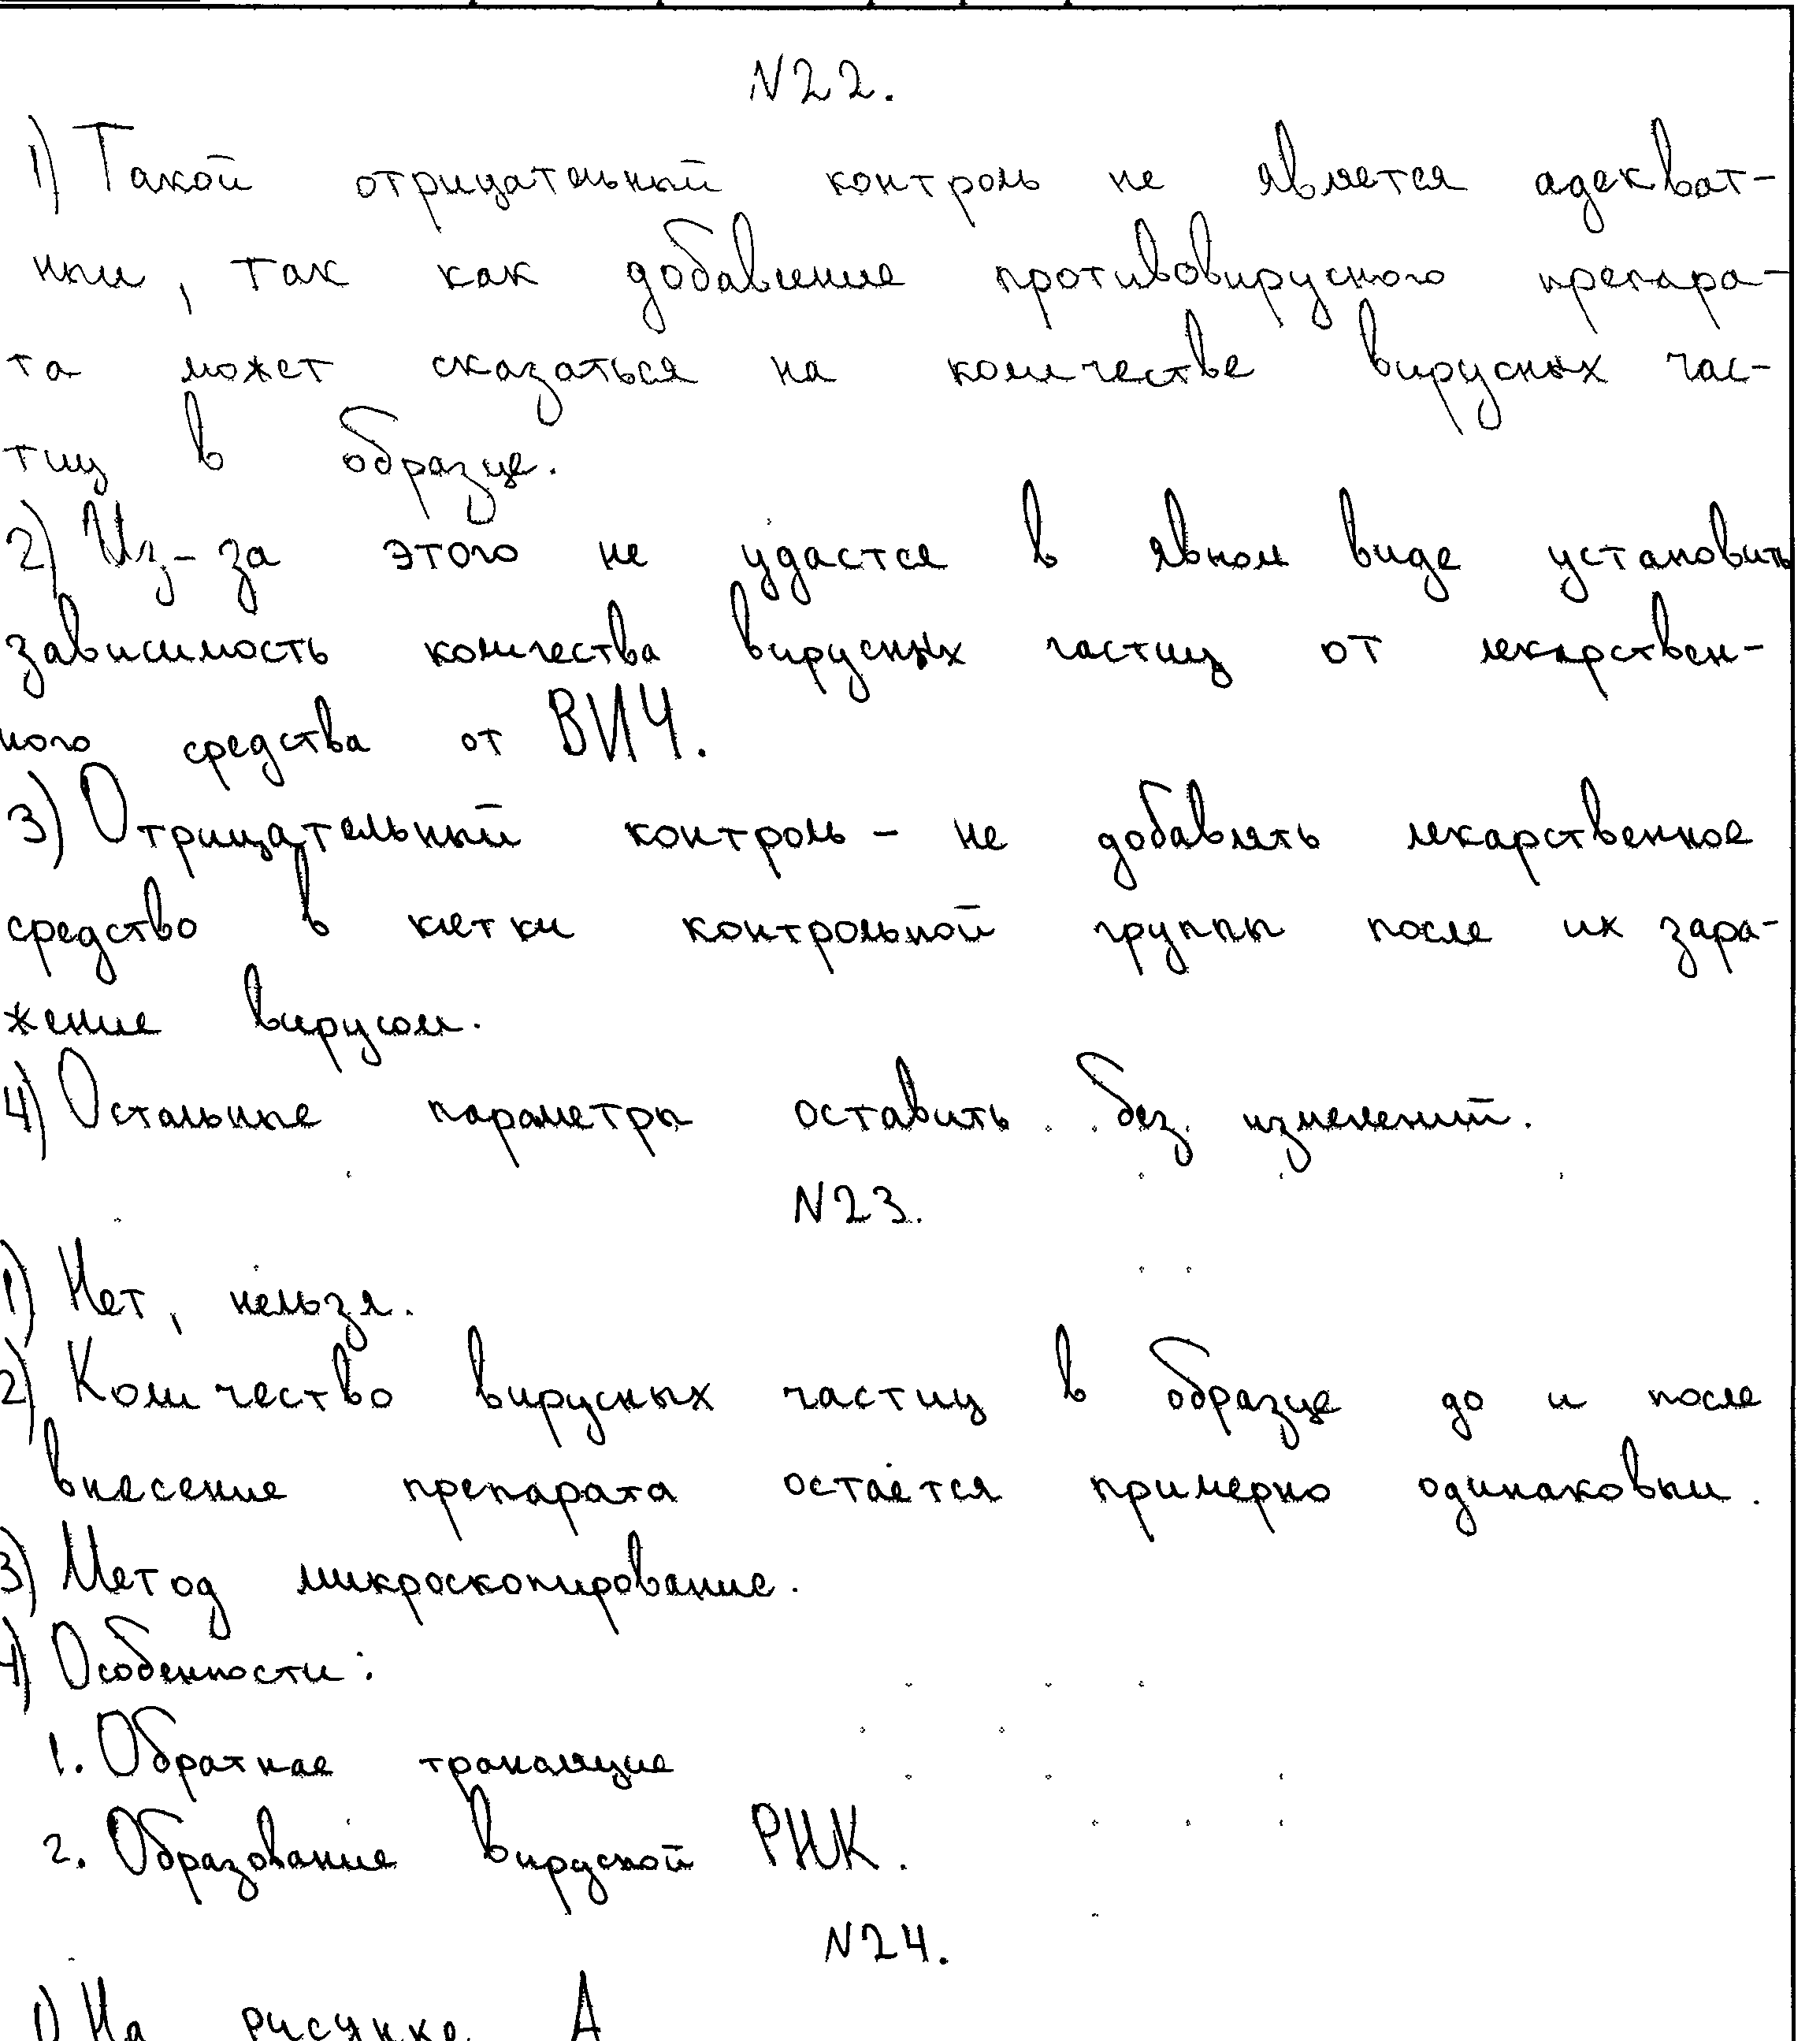 N22.
1) Такой отрицательный контроль не является адекват-
ным, так как добавление противовирусного препара-
та может сказаться на количестве вирусных час-
тиц в образце.
2) Из-за этого не удастся в явном виде установить
зависимость количества вирусных частиц от лекарствен-
ного средства от ВИЧ.
3) Отрицательный контроль - не добавлять лекарственное
средство в клетки контрольной группы после их зара-
жение вирусом.
4) Остальные параметры оставить без изменений.
N23.
1) Нет, нельзя.
2) Количество вирусных частиц в образце до и после
внесение препарата остаётся примерно одинаковым.
3) Метод микроскопирование.
4) Особенности:
1. Обратная трансляция
2. Образование вирусной РНК.
N24.
1) На рисунке А